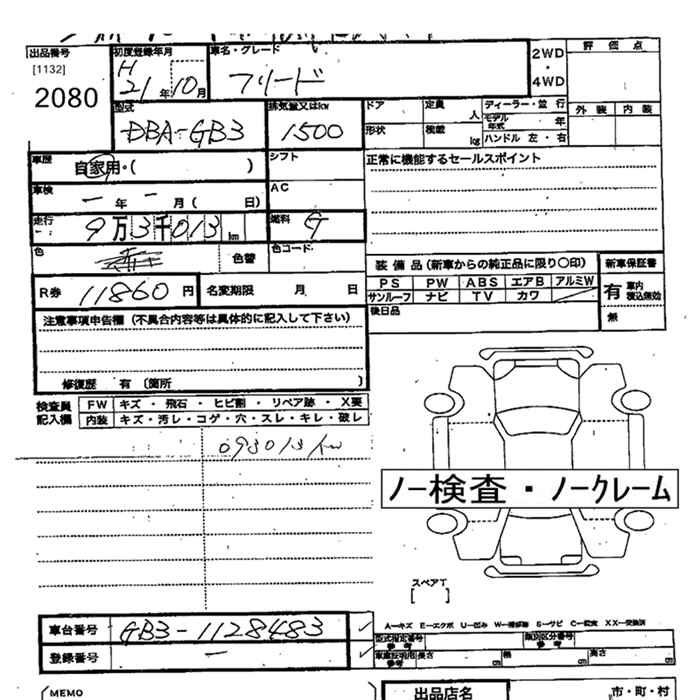 出品番号
[1132]
2080
初度登録年月
H
21年10月
車名・グレード
フリード
2WD
・
4WD
評 価 点
外 装 内 装
型式
DBA-GB3
排気量又はkw
1500
ドア 定員 人
形状 積載 kg
ディーラー・並 行
モデル年式 年
ハンドル 左・右
車歴
自家用・( )
シフト
正常に機能するセールスポイント
車検
ー年ー月( 日)
AC
走行
9万3千013km
燃料
G
色
色替
色コード
装 備 品 (新車からの純正品に限り○印)
PS PW ABS エアB アルミW
サンルーフ ナビ TV カワ
新車保証書
有 車内積込無効
無
R券 11860円
名変期限 月 日
後日品
注意事項申告欄 (不具合内容等は具体的に記入して下さい)
修復歴 有 〔箇所 〕
検査員
記入欄
FW キズ・飛石・ヒビ割・リペア跡・X要
内装 キズ・汚レ・コゲ・穴・スレ・キレ・破レ
093013km
ノー検査・ノークレーム
スペアT
[ ]
車台番号 GB3-1128483 ✓
登録番号 ー ✓
A-キズ E-エクボ U-凹み W-補修跡 S-サビ C-腐食 XX-交換済
型式指定番号
参 考
類別区分番号
参 考
車庫証明用
参考
長さ cm 幅 cm 高さ cm
MEMO
出品店名
市・町・村